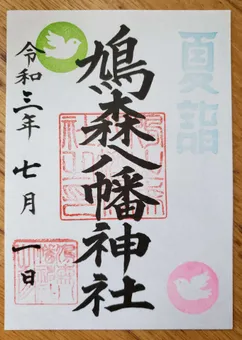 夏詣
鳩森八幡神社
令和三年七月一日